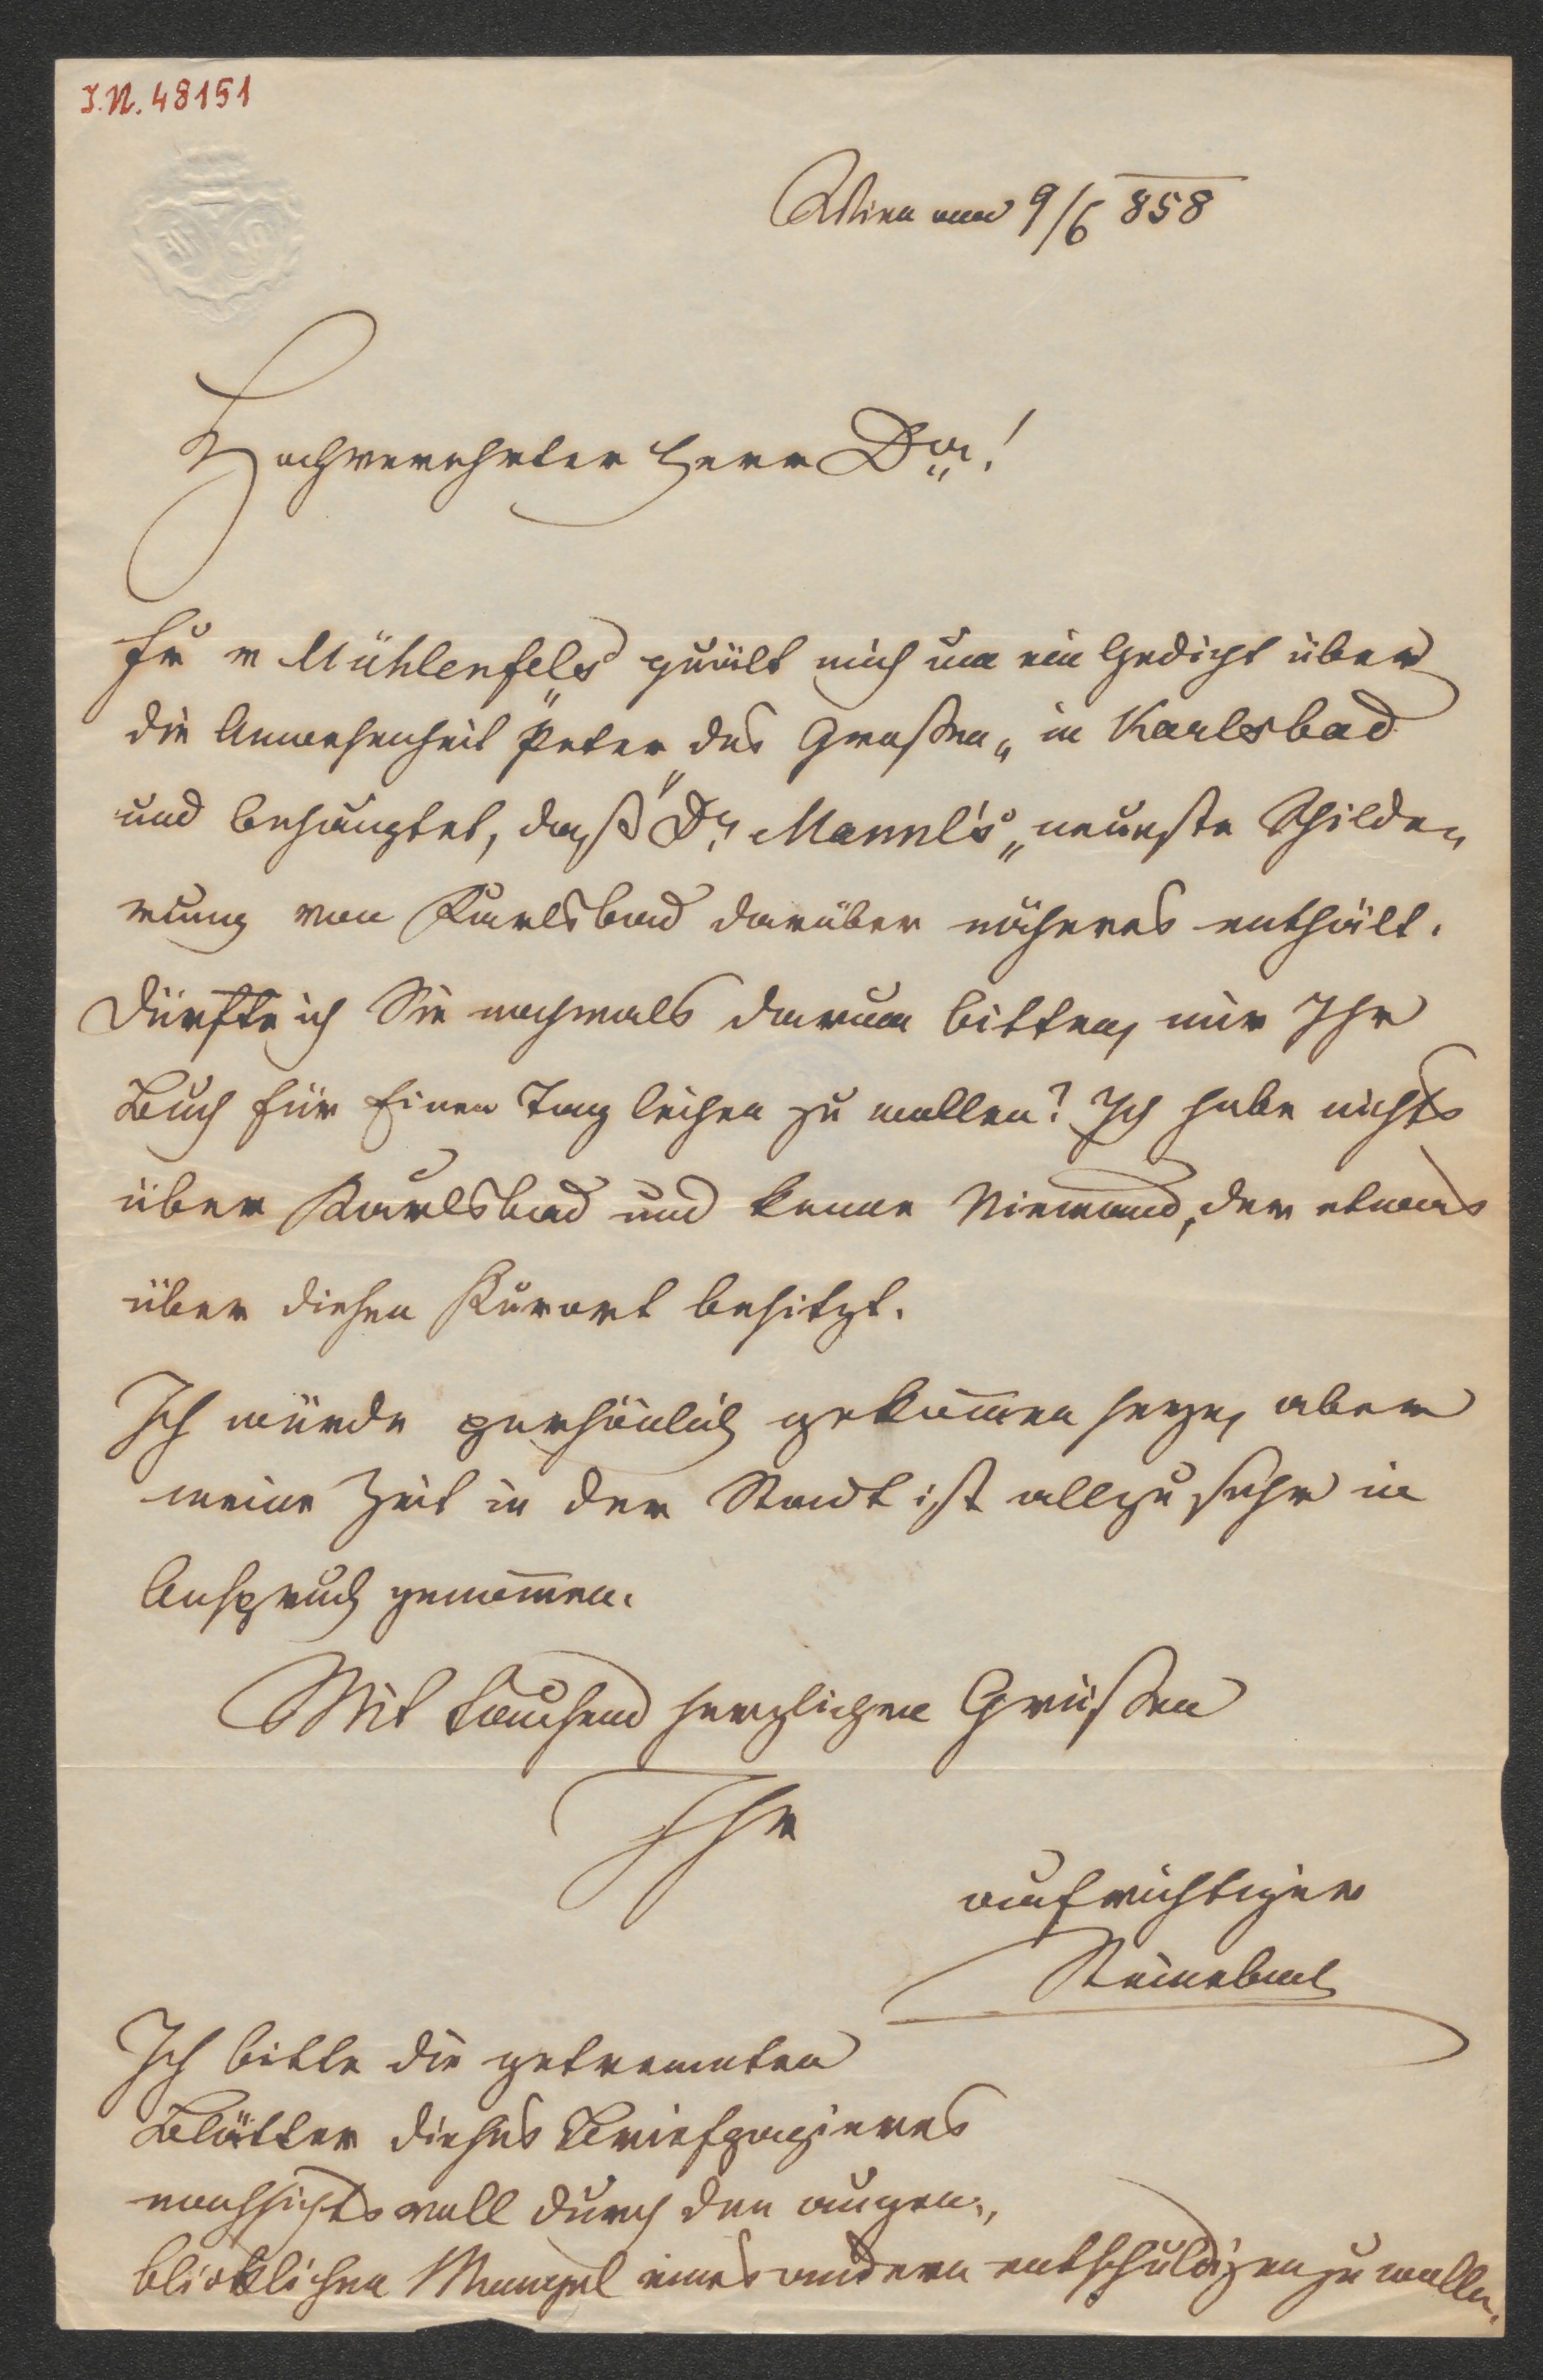 I.N. 48151
Wien am 9/6 858
Hochverehrter Herr Dor!
Fr v Mühlenfels quält mich um ein Gedicht über
die Anwesenheit "Peter des Großen" in Karlsbad
und behauptet, daß "Dr. Mannl's" neueste Schilde=
rung von Karlsbad darüber näheres enthält.
Dürfte ich Sie nochmals darum bitten, mir Ihr
Buch für Einen Tag leihen zu wollen? Ich habe nichts
über Karlsbad und kenne Niemand, der etwas
über diesen Kurort besitzt.
Ich würde persönlich gekommen seyn, aber
meine Zeit in der Stadt ist allzu sehr in
Anspruch genommen.
Mit tausend herzlichen Grüßen
Ihr
aufrichtiger
Steinebach
Ich bitte die getrennten
Blätter dieses Briefpapieres
nachsichtsvoll durch den augen=
blicklichen Mangel eines andern entschuldigen zu wollen.